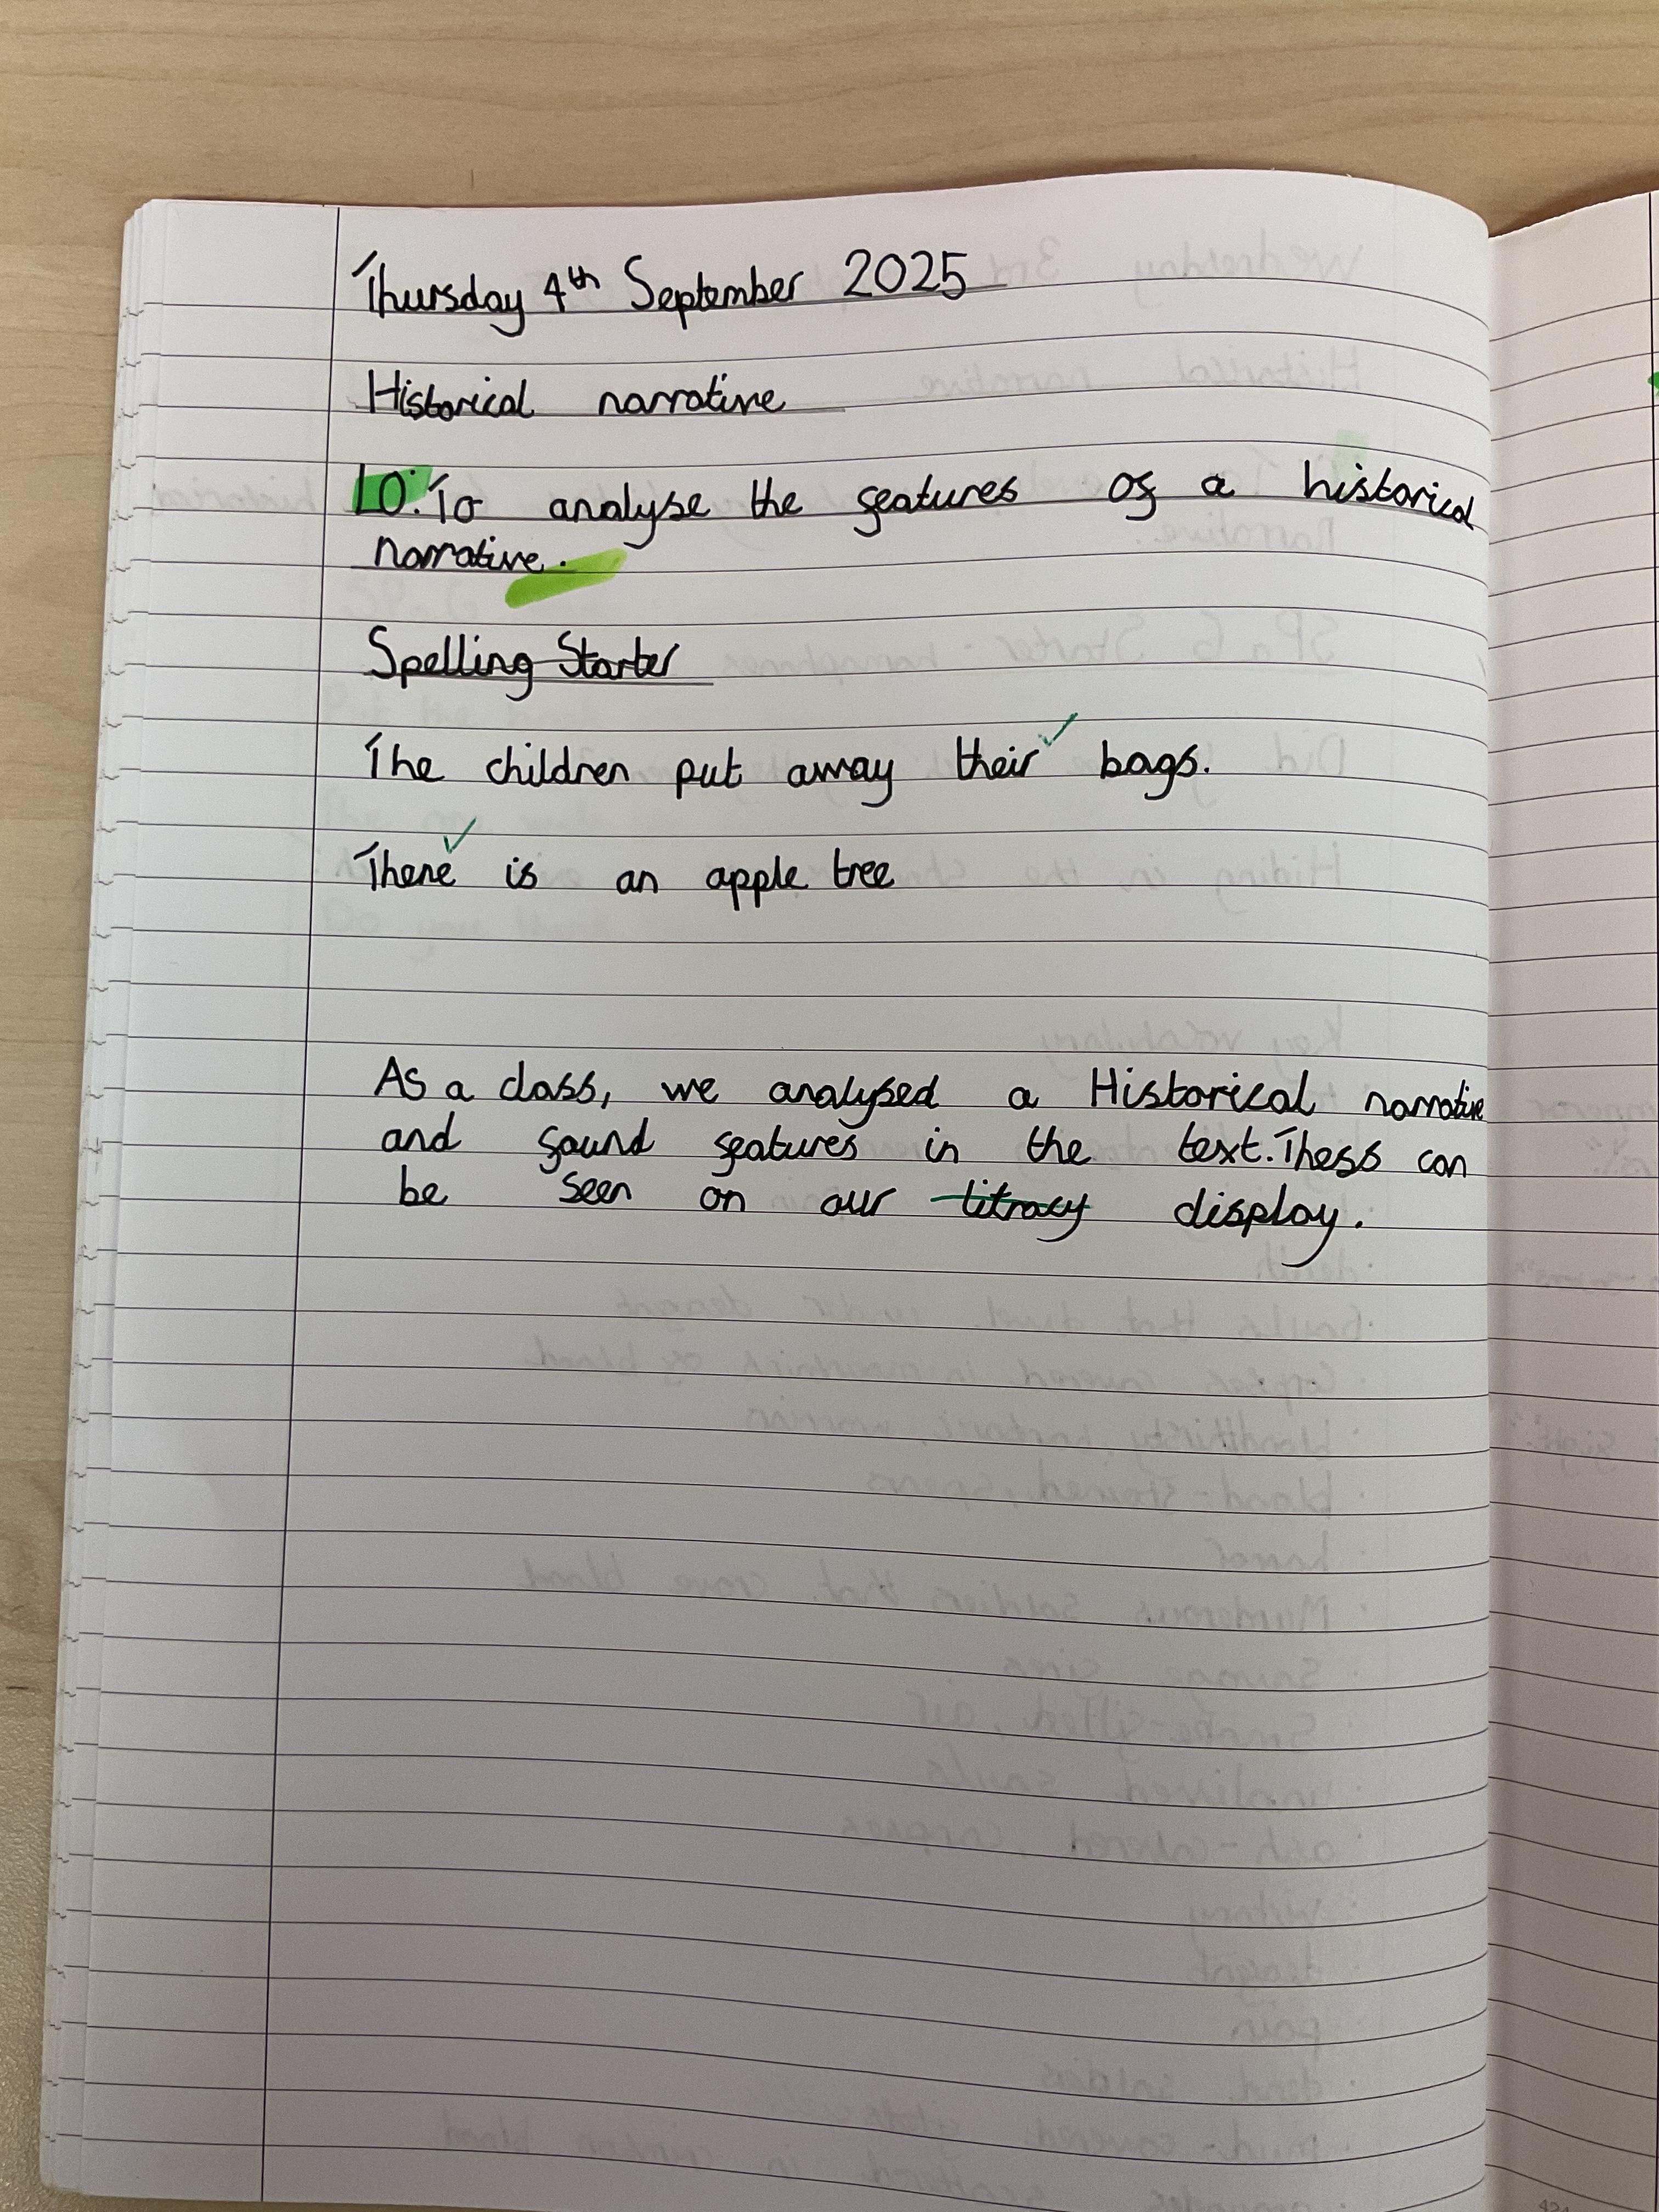 Thursday 4th September 2025
Historical narrative
LO: To analyse the features of a historical
narrative.
Spelling Starter
The children put away their bags.
There is an apple tree
As a class, we analysed a Historical narrative
and found features in the text. Thess can
be seen on our litracy display.